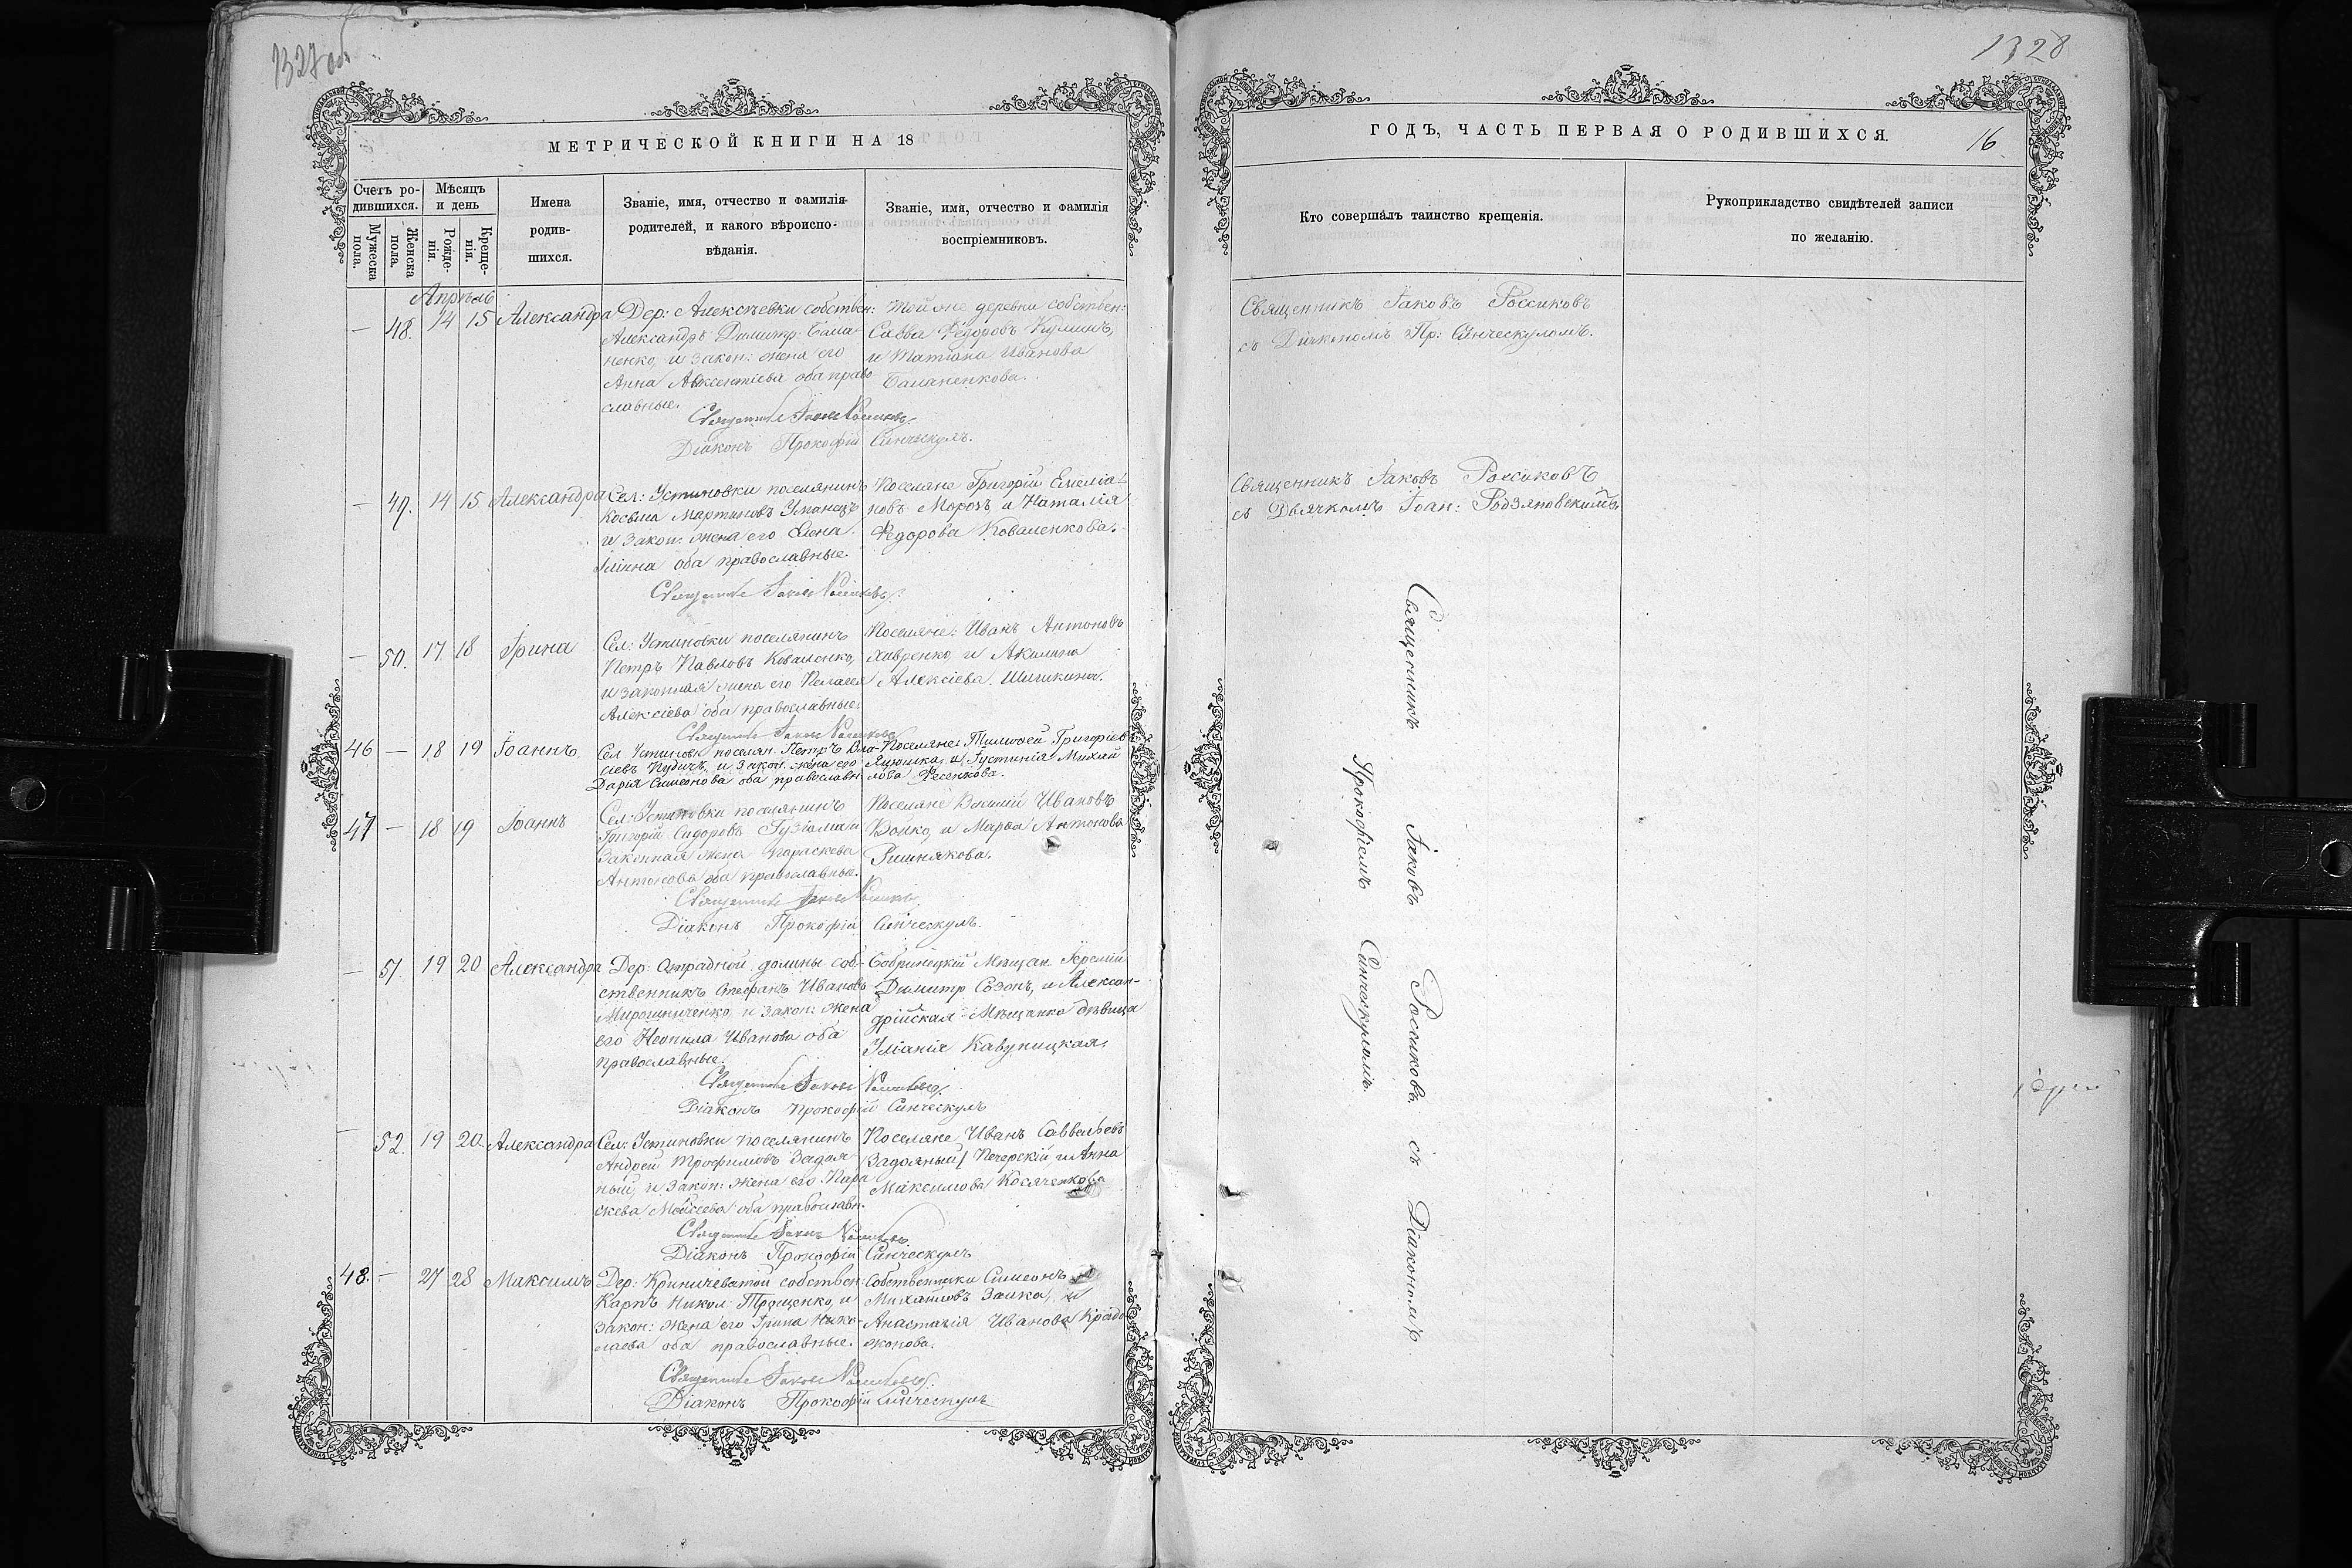 1327 об
МЕТРИЧЕСКОЙ КНИГИ НА 18
Счетъ ро-
дившихся.
Мужеска пола.
Женска пола.
Мѣсяцъ
и день
Рожде-
нія.
Креще-
нія.
Имена
родив-
шихся.
Званіе, имя, отчество и фамилія
родителей, и какого вѣроиспо-
вѣданія.
Званіе, имя, отчество и фамилія
воспріемниковъ.
Апрѣль
— 48. 14 15 Александра
Дер: Алексѣевки собствен:
Александръ Димитр. Бала-
ненко, и закон: жена его
Анна Авксентіева оба право
славные.
Той же деревни собствен:
Савва Ѳедоровъ Кулишъ,
и Татіана Иванова
Баланенкова.
Священникъ Іаковъ Россиковъ.
Діаконъ Прокофій Синческулъ.
— 49. 14 15 Александра
Сел: Устиновки поселянинъ
Косьма Мартиновъ Уманецъ
и закон: жена его Елена
Ильина оба православные.
Поселяне Григорій Емеліа-
новъ Морозъ и Наталія
Ѳедорова Коваленкова.
Священникъ Іаковъ Россиковъ.
— 50. 17. 18 Ирина
Сел: Устиновки поселянинъ
Петръ Павловъ Коваленко,
и законная жена его Пелагея
Алексіева оба православные.
Поселяне: Иванъ Антоновъ
Хивренко, и Акилина
Алексіева Шишкина.
Священникъ Іаковъ Россиковъ
46 — 18 19 Іоаннъ
Сел Устиновк поселян. Петръ Вла-
сіевъ и закон. жена его
Дарія Симеонова оба православн
Поселяне: Тимофей Григоріевъ
и Іустинія Михай
лова Фесенкова.
47 — 18 19 Іоаннъ
Сел: Устиновки поселянинъ
Григорій Сидоровъ
Законная жена Параскева
Антонова оба православные.
Поселяне Василій Ивановъ
Бойко, и Марѳа Антонова
Вишнякова.
Священникъ Іаковъ Россиковъ
Діаконъ Прокофій Синческулъ.
— 51. 19 20 Александра
Дер: Отрадной долины соб-
ственникъ Стефанъ Ивановъ
Мирошниченко и закон: жена
его Неонила Иванова оба
православные.
Бобринецкій Мѣщан. Іеремій
Димитр. Созонъ, и Алексан-
дрійская Мѣщанка дѣвица
Уліанія Кавуницкая.
Священникъ Іаковъ Россиковъ.
Діаконъ Прокофій Синческулъ
— 52. 19 20 Александра
Сел: Устиновки поселянинъ
Андрей Трофимовъ Задоя
ный, и закон: жена его Пара
скева Моѵсеева оба православн.
Поселяне Иванъ Савельевъ
Задояный, Печерскій и Анна
Максимова Косяченкова
Священникъ Іаковъ Россиковъ.
Діаконъ Прокофій Синческулъ
48. — 27 28 Максимъ
Дер: Криничеватой собствен:
Карпъ Никол: Троценко, и
закон: жена его Ирина Нико-
лаева оба православные.
Собственники Симеонъ
Михайловъ Заика, и
Анастасія Иванова
Священникъ Іаковъ Россиковъ.
Діаконъ Прокофій Синческулъ
1328
ГОДЪ, ЧАСТЬ ПЕРВАЯ О РОДИВШИХСЯ.
16
Кто совершалъ таинство крещенія.
Рукоприкладство свидѣтелей записи
по желанію.
Священникъ Іаковъ Россиковъ
съ Діакономъ Пр: Синческуломъ.
Священникъ Іаковъ Россиковъ
съ Дьячкомъ Іоан: Родзяновскимъ.
Священникъ Іаковъ Россиковъ съ Діакономъ
Прокофіемъ Синческуломъ.